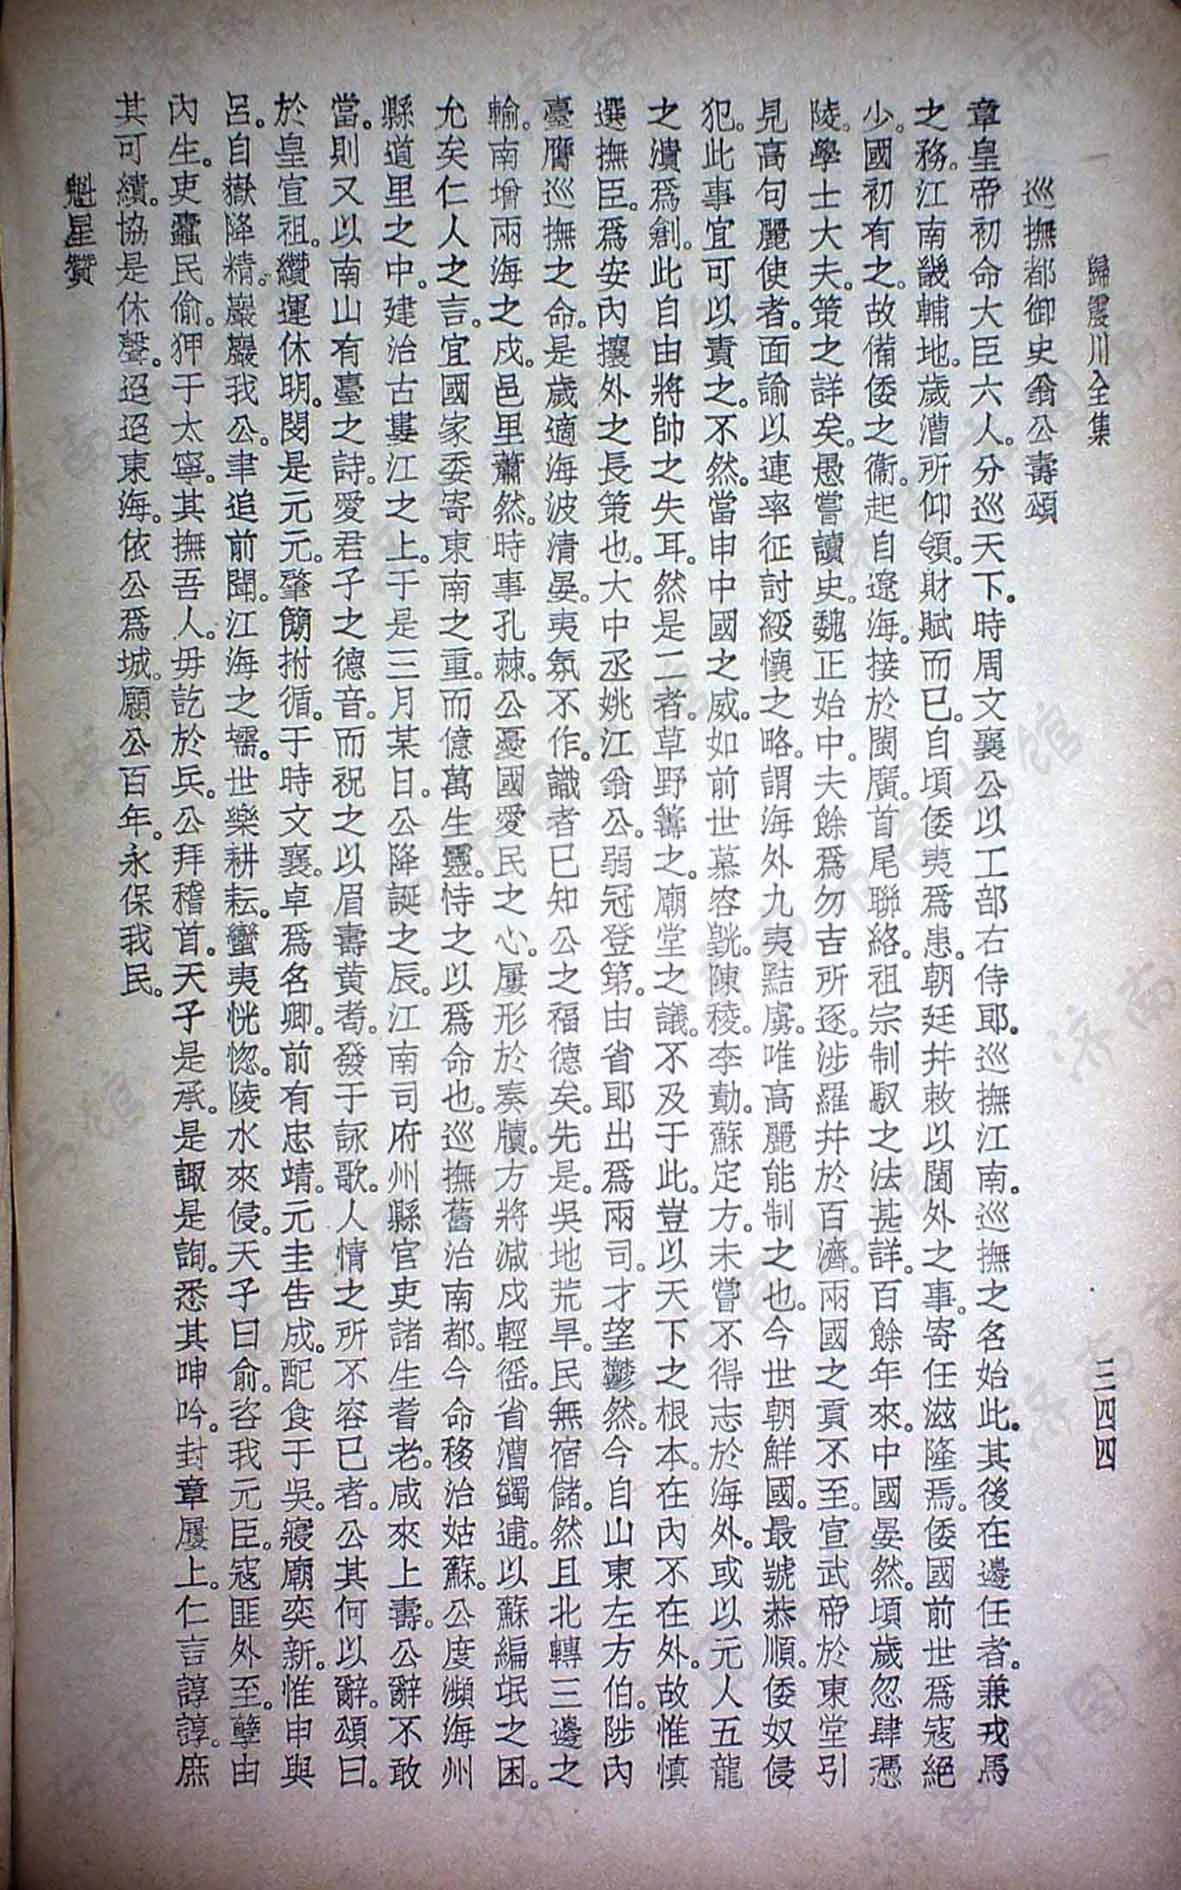 歸震川全集
三四四
巡撫都御史翁公壽頌
章皇帝初命大臣六人。分巡天下。時周文襄公以工部右侍郎。巡撫江南。巡撫之名始此。其後在邊任者。兼戎馬
之務。江南畿輔地。歲漕所仰領。財賦而已。自頃倭夷爲患。朝廷幷敕以閫外之事。寄任滋隆焉。倭國前世爲寇絕
少。國初有之。故備倭之衞。起自遼海。接於閩廣。首尾聯絡。祖宗制馭之法甚詳。百餘年來。中國晏然。頃歲忽肆憑
陵。學士大夫。策之詳矣。愚嘗讀史。魏正始中。夫餘爲勿吉所逐。涉羅幷於百濟。兩國之貢不至。宣武帝於東堂引
見高句麗使者。面諭以連率征討綏懷之略。謂海外九夷黠虜。唯高麗能制之也。今世朝鮮國。最號恭順。倭奴侵
犯。此事宜可以責之。不然。當申中國之威。如前世慕容皝。陳稜。李勣。蘇定方。未嘗不得志於海外。或以元人五龍
之潰爲創。此自由將帥之失耳。然是二者。草野籌之。廟堂之議。不及于此。豈以天下之根本。在內不在外。故惟慎
選撫臣。爲安內攘外之長策也。大中丞姚江翁公。弱冠登第。由省郎出爲兩司。才望鬱然。今自山東左方伯。陟內
臺膺巡撫之命。是歲適海波清晏。夷氛不作。識者已知公之福德矣。先是。吳地荒旱。民無宿儲。然且北轉三邊之
輸。南增兩海之戍。邑里蕭然。時事孔棘。公憂國愛民之心。屢形於奏牘。方將減戍輕徭。省漕蠲逋。以蘇編氓之困。
允矣仁人之言。宜國家委寄東南之重。而億萬生靈。恃之以爲命也。巡撫舊治南都。今命移治姑蘇。公度瀕海州
縣道里之中。建治古婁江之上。于是三月某日。公降誕之辰。江南司府州縣官吏諸生耆老。咸來上壽。公辭不敢
當。則又以南山有臺之詩。愛君子之德音。而祝之以眉壽黃耇。發于詠歌。人情之所不容已者。公其何以辭。頌曰。
於皇宣祖。纘運休明。閔是元元。肇簡拊循。于時文襄。卓爲名卿。前有忠靖。元圭告成。配食于吳。寢廟奕新。惟申與
呂。自嶽降精。巖巖我公。聿追前聞。江海之壖。世樂耕耘。蠻夷恍惚。陵水來侵。天子曰俞。咨我元臣。寇匪外至。孽由
內生。吏蠹民偷。狎于太寧。其撫吾人。毋訖於兵。公拜稽首。天子是承。是諏是詢。悉其呻吟。封章屢上。仁言諄諄。庶
其可績。協是休聲。迢迢東海。依公爲城。願公百年。永保我民。
魁星贊